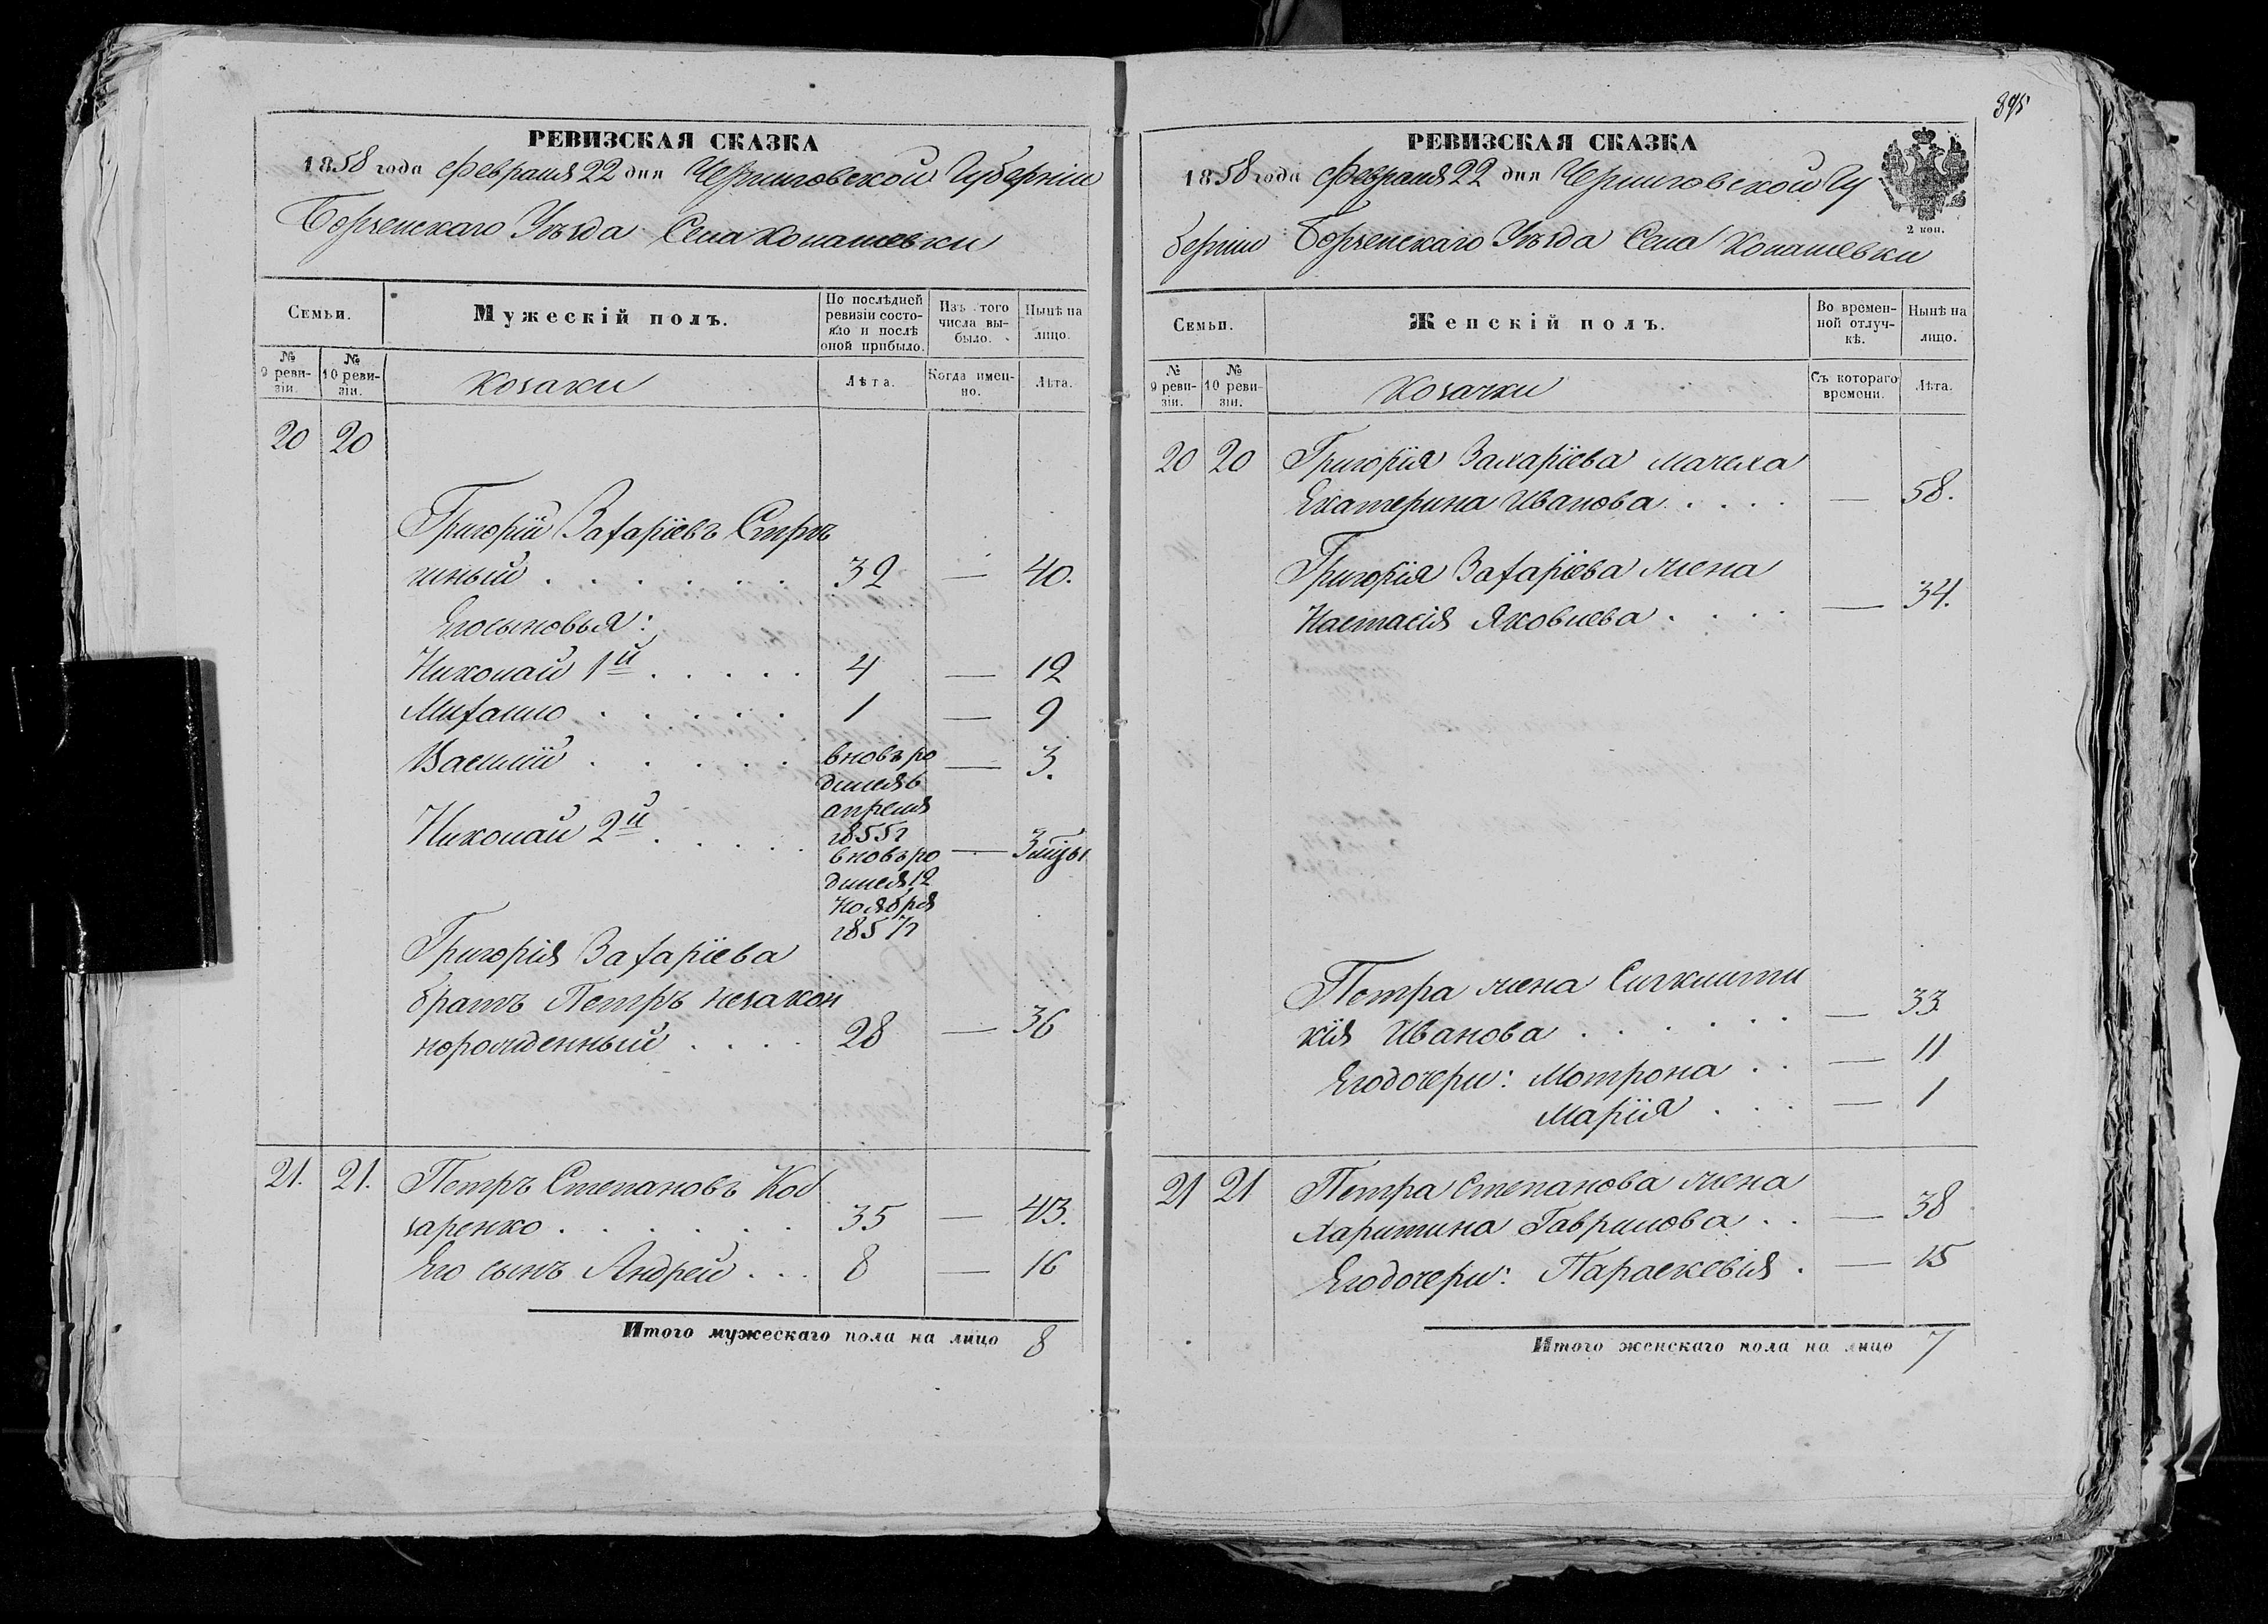 895
РЕВИЗСКАЯ СКАЗКА
1858 года Февраля 22 дня Черниговской Губерніи
Борзенскаго Уѣзда Села Копашевки
Семьи.
Мужескій полъ.
По послѣдней ревизіи состо-
яло и послѣ оной прибыло.
Изъ того числа вы-
было.
Нынѣ на лицо.
№ 9 реви-
зіи.
№ 10 реви-
зіи.
Козаки
Лѣта.
Когда имен-
но.
Лѣта.
20 20
Григорій Захаріевъ
шный . . . . . . 32 — 40.
Его сыновья:
Николай 1й . . . . . 4 — 12
Михайло . . . . . 1 — 9
Василій . . . . . вновь ро — 3.
дился 6
апреля
1855г
Николай 2й . . . . . вновь ро — 3 мцы
дился 12
Ноября
1857г
Григорія Захаріева
братъ Петръ незакон
норожденный . . . . 28 — 36
21. 21. Петръ Степановъ Коб
заренко . . . . . . 35 — 43.
Его сынъ Андрей . . . 8 — 16
Итого мужескаго пола на лицо 8
РЕВИЗСКАЯ СКАЗКА
1858 года Февраля 22 дня Черниговской Гу
берніи Борзенскаго Уѣзда Села Копашевки
2 коп.
Семьи.
Женскій полъ.
Во времен-
ной отлуч-
кѣ.
Нынѣ на лицо.
№ 9 реви-
зіи.
№ 10 реви-
зіи.
Козачки
Съ котораго времени.
Лѣта.
20 20 Григорія Захаріева мачеха
Екатерина Иванова . . . . — 58.
Григорія Захаріева жена
Настасія Яковлева . . . . — 34.
Петра жена Сигклити
кія Иванова . . . . . . — 33
Его дочери: Мотрона . . — 11
Марія . . . — 1
21 21 Петра Степанова жена
Харитина Гаврилова . . — 38
Его дочери: Параскевія . — 15
Итого женскаго пола на лицо 7